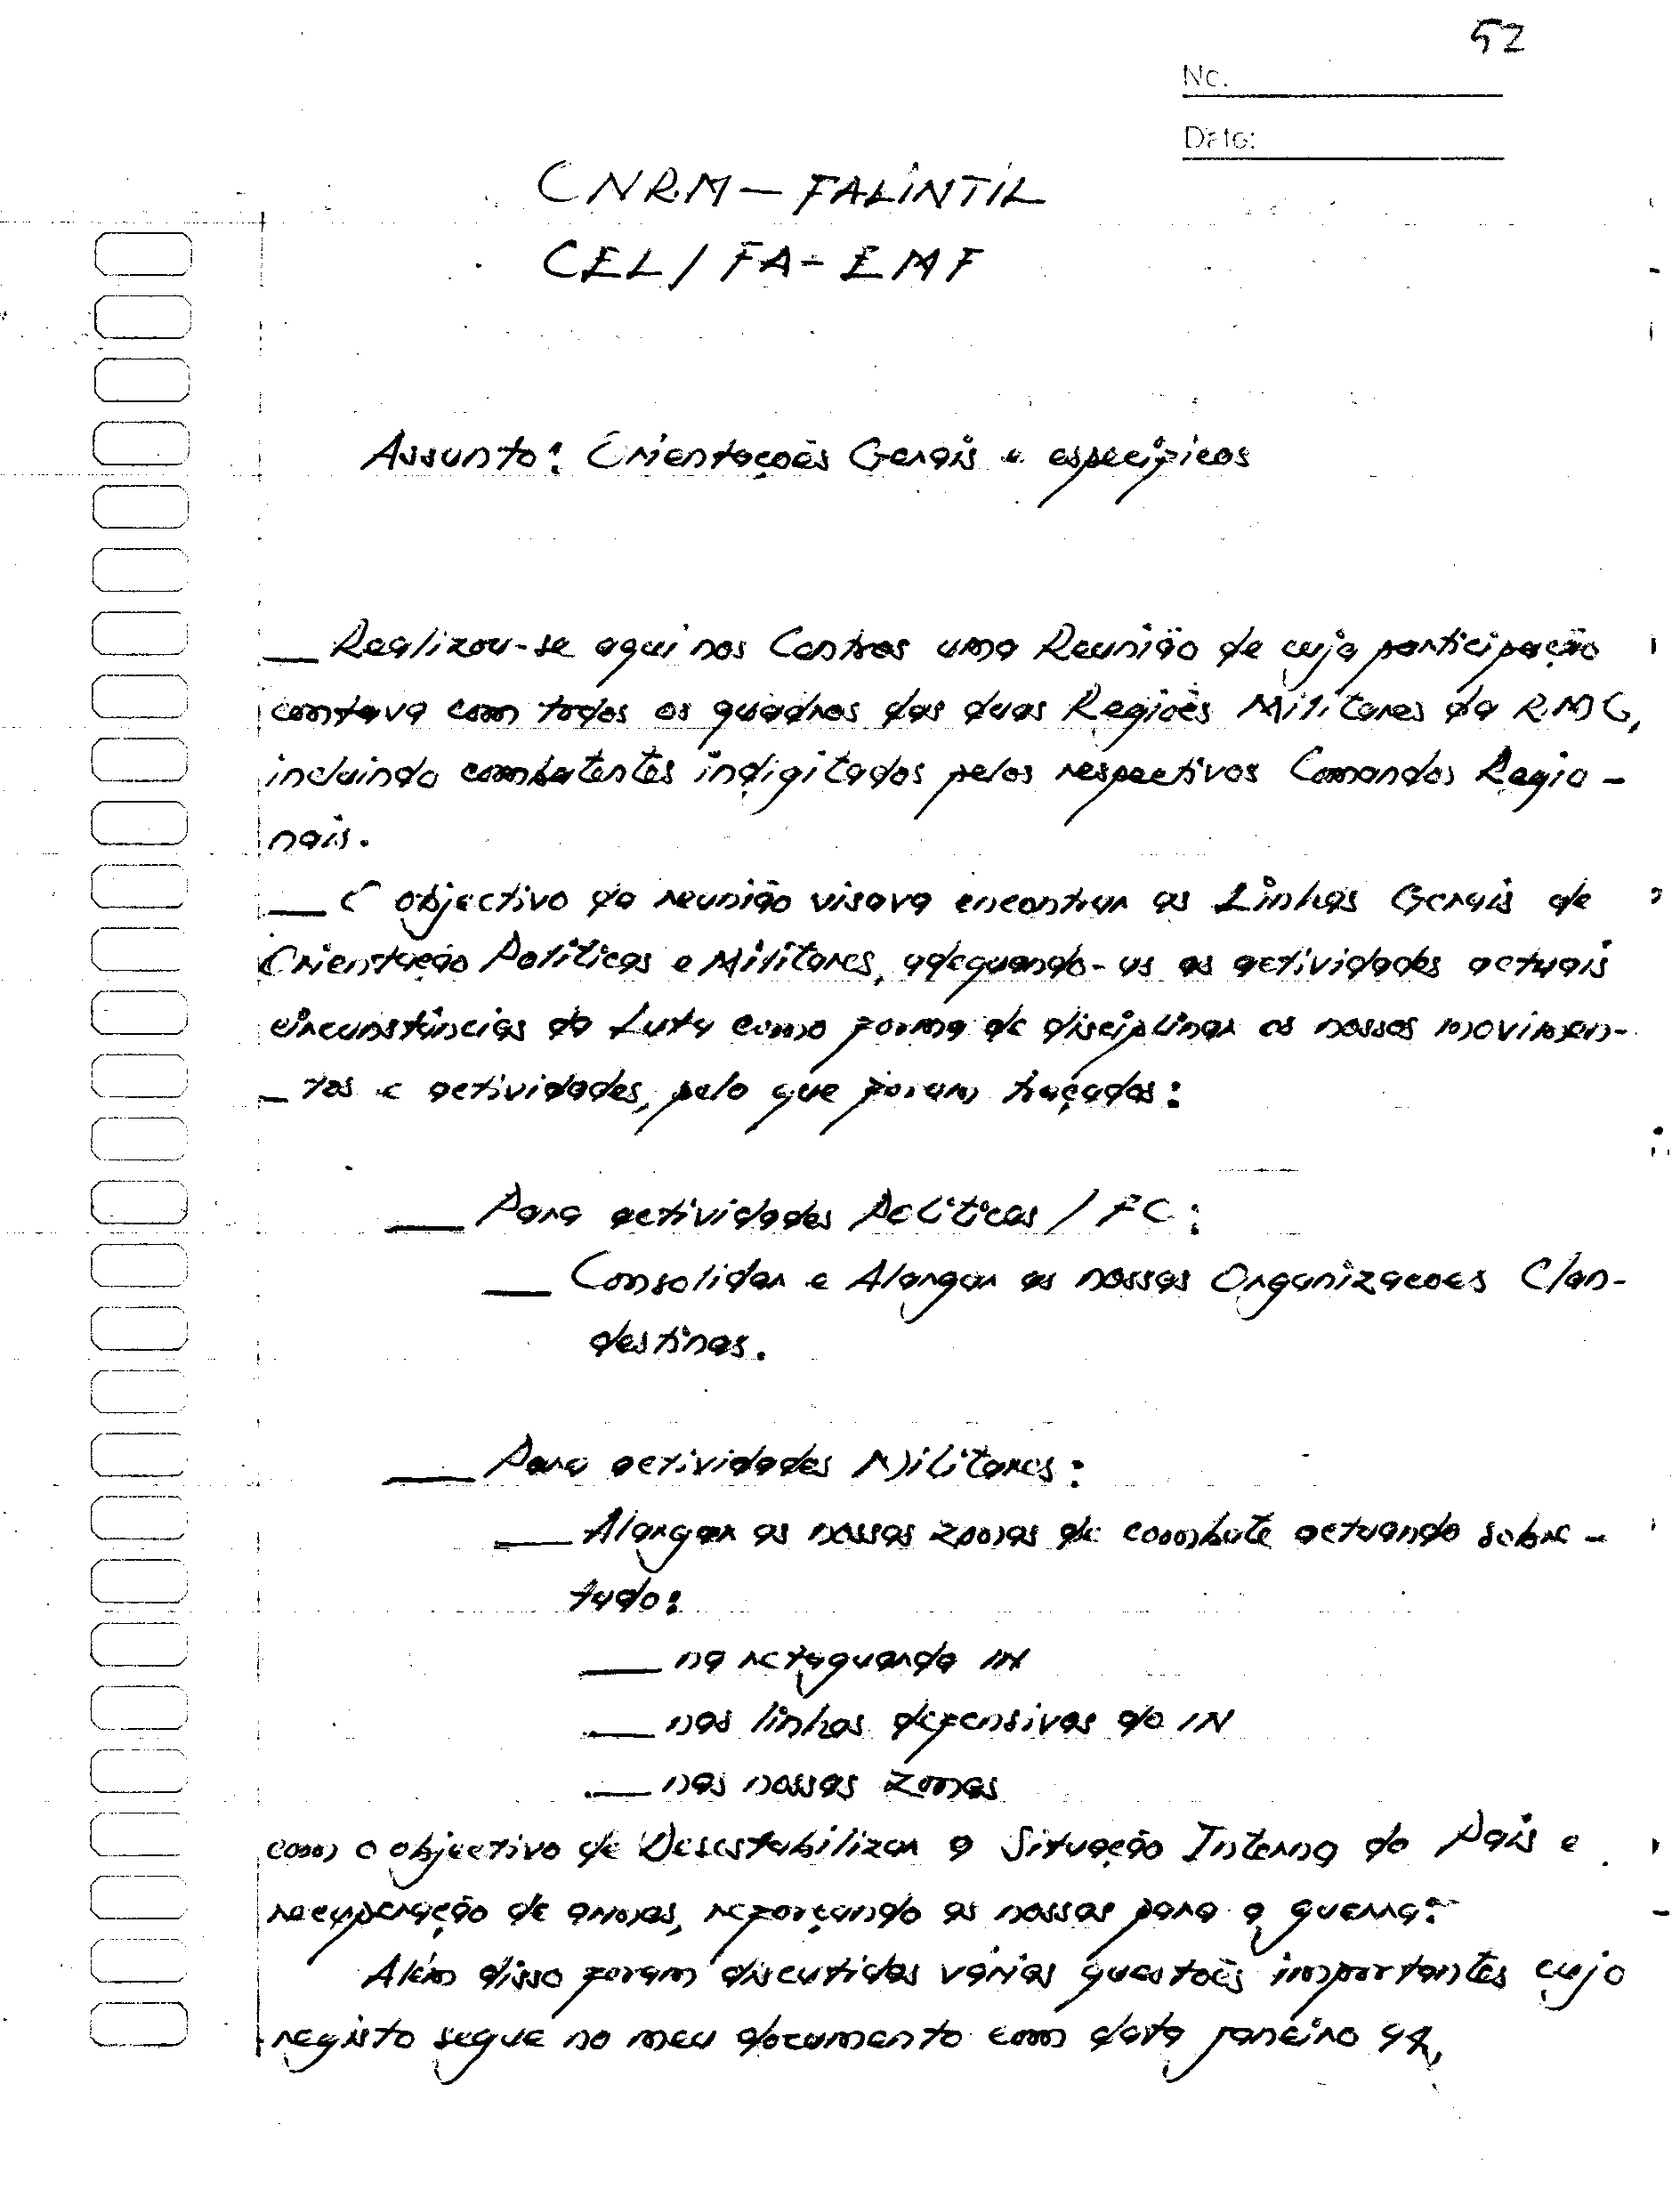 52
No.
Date:
CNRM – FALINTIL
CEL / FA – EMF
Assunto: Orientações Gerais e especificos
— Realizou-se aqui nos Centros uma Reunião de cuja participação
contava com todos os quadros das duas Regiões Militares da R.M.C,
incluindo combatentes indigitados pelos respectivos Comandos Regio-
nais.
— O objectivo da reunião visava encontrar as Linhas Gerais de
Orientação Políticas e Militares, adequando-as as actividades actuais
circunstâncias da Luta como forma de disciplinar os nossos movimen-
— tos e actividades, pelo que foram traçados:
— Para actividades Políticas / FC:
— Consolidar e Alargar as nossas Organizacoes Clan-
destinas.
— Para actividades Militares:
— Alargar as nossas zonas de combate actuando sobre-
tudo:
— na retaguarda IN
— nas linhas defensivas do IN
— nas nossas zonas
com o objectivo de Desestabilizar a Situação Interna do País e
recuperação de armas, reforçando as nossas para a guerra.
Além disso foram discutidas várias questões importantes cujo
registo segue no meu documento com data janeiro 94,